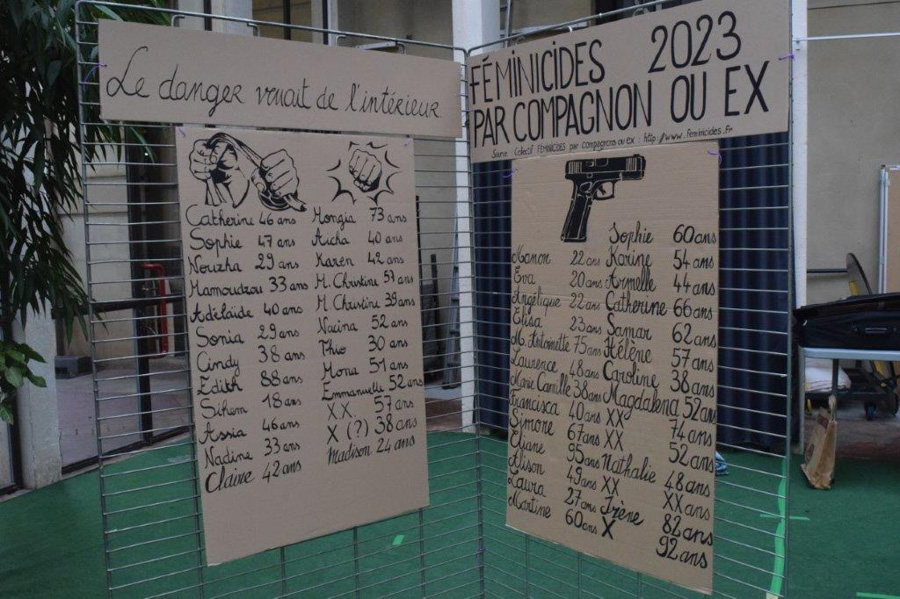 Le danger venait de l'intérieur.
Catherine 46 ans
Sophie 47 ans
Nouzha 29 ans
Mamoudzou 33 ans
Adélaïde 40 ans
Sonia 29 ans
Cindy 38 ans
Edith 88 ans
Sihem 18 ans
Assia 46 ans
Nadine 33 ans
Claire 42 ans
Mongia 73 ans
Aicha 40 ans
Karen 42 ans
M. Christine ans
M. Christine 39 ans
Nacina 52 ans
Thio 30 ans
Mona 51 ans
Emmanuelle 52 ans
X.X. 57 ans
X (?) 38 ans
Madison 24 ans
FÉMINICIDES 2023
PAR COMPAGNON OU EX
Source : Collectif FÉMINICIDES par compagnons ou ex : http://www.feminicides.fr
Manon 22 ans
Eva 20 ans
Angélique 22 ans
Elisa 23 ans
M. Antoinette 75 ans
Laurence 48 ans
Marie Camille 38 ans
Francisca 40 ans
Simone 67 ans
Eliane 95 ans
Alison 49 ans
Laura 27 ans
Martine 60 ans
Sophie 60 ans
Karine 54 ans
Armelle 44 ans
Catherine 66 ans
Samar 62 ans
Hélène 57 ans
Caroline 38 ans
Magdalena 52 ans
XX 74 ans
XX 52 ans
Nathalie 48 ans
XX XX ans
Irène 82 ans
X 92 ans